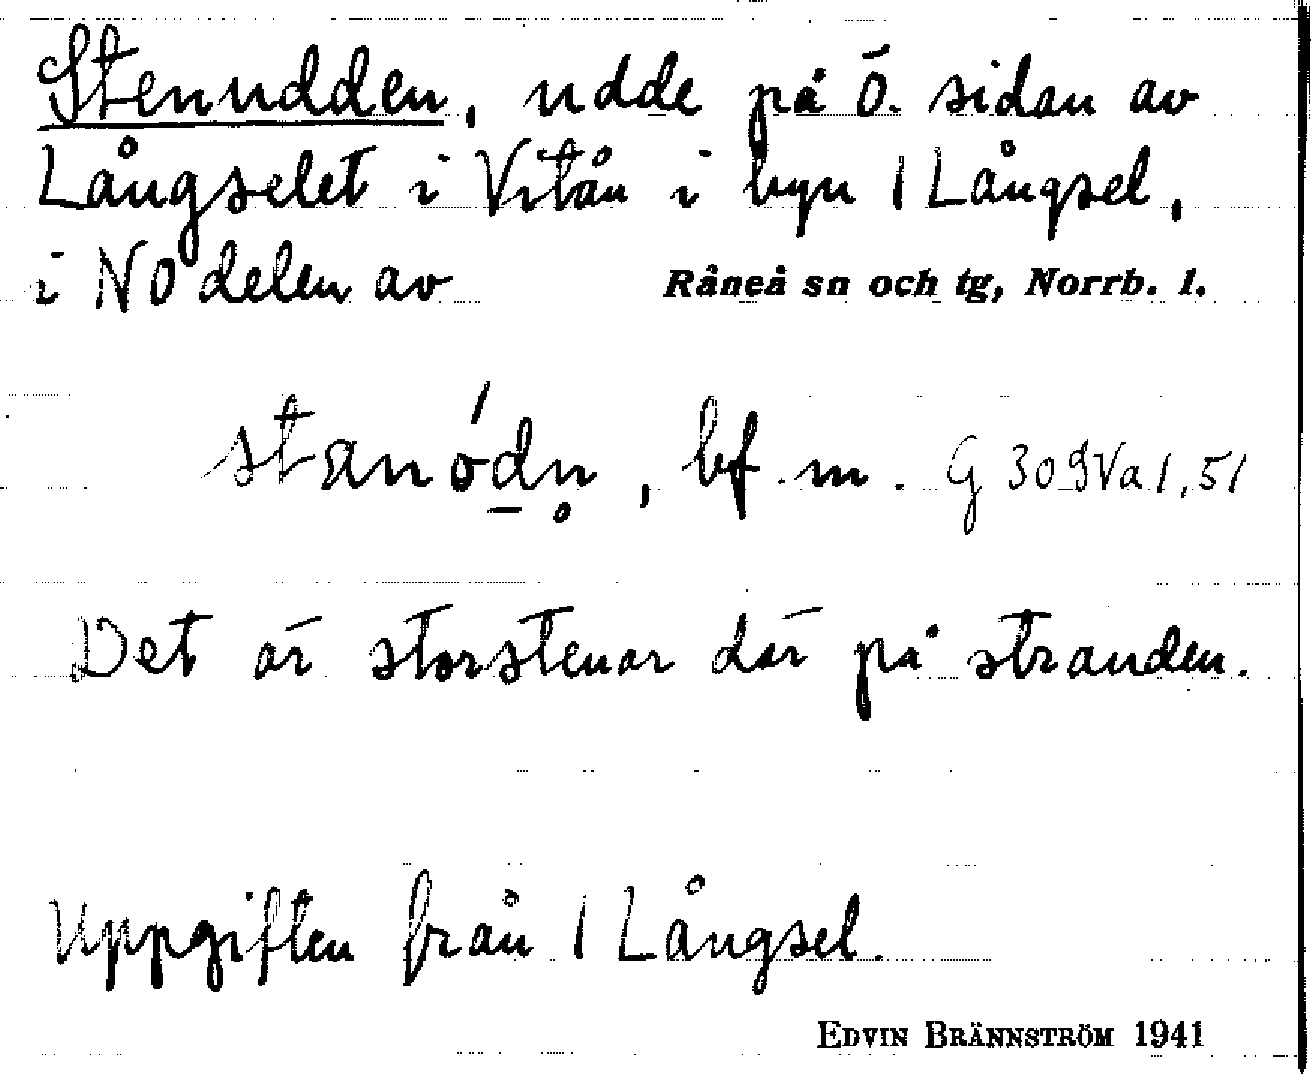 Stenudden, udde på Ö. sidan av
Långselet i Vitån i byn 1 Långsel,
i NO delen av Råneå sn och tg, Norrb. l.
stanódn̥, bf. m. G 309Va1,51
Det är storstenar där på stranden.
Uppgiften från 1 Långsel.
EDVIN BRÄNNSTRÖM 1941